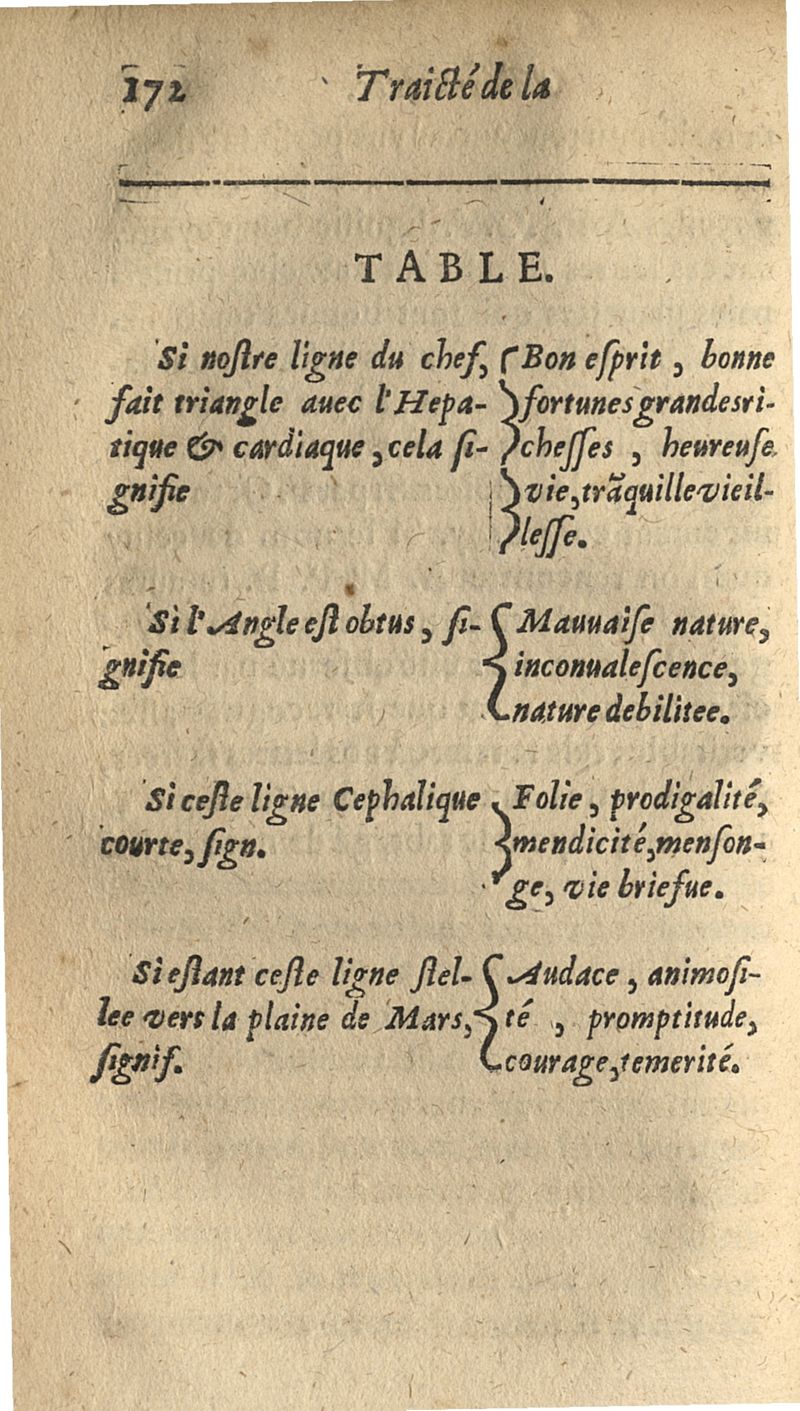 172 Traicté de la
TABLE.
Si noſtre ligne du chef,
fait triangle auec l'Hepa-
tique & cardiaque, cela ſi-
gnifie
Bon eſprit, bonne
fortunes grandes ri-
cheſſes, heureuſe
vie, trãquille vieil-
leſſe.
Si l'Angle eſt obtus, ſi-
gnifie
Mauuaiſe nature,
inconualeſcence,
nature debilitee.
Si ceſte ligne Cephalique
courte, ſign.
Folie, prodigalité,
mendicité, menſon-
ge, vie briefue.
Si eſtant ceſte ligne ſtel-
lee vers la plaine de Mars,
ſignif.
Audace, animoſi-
té, promptitude,
courage, temerité.